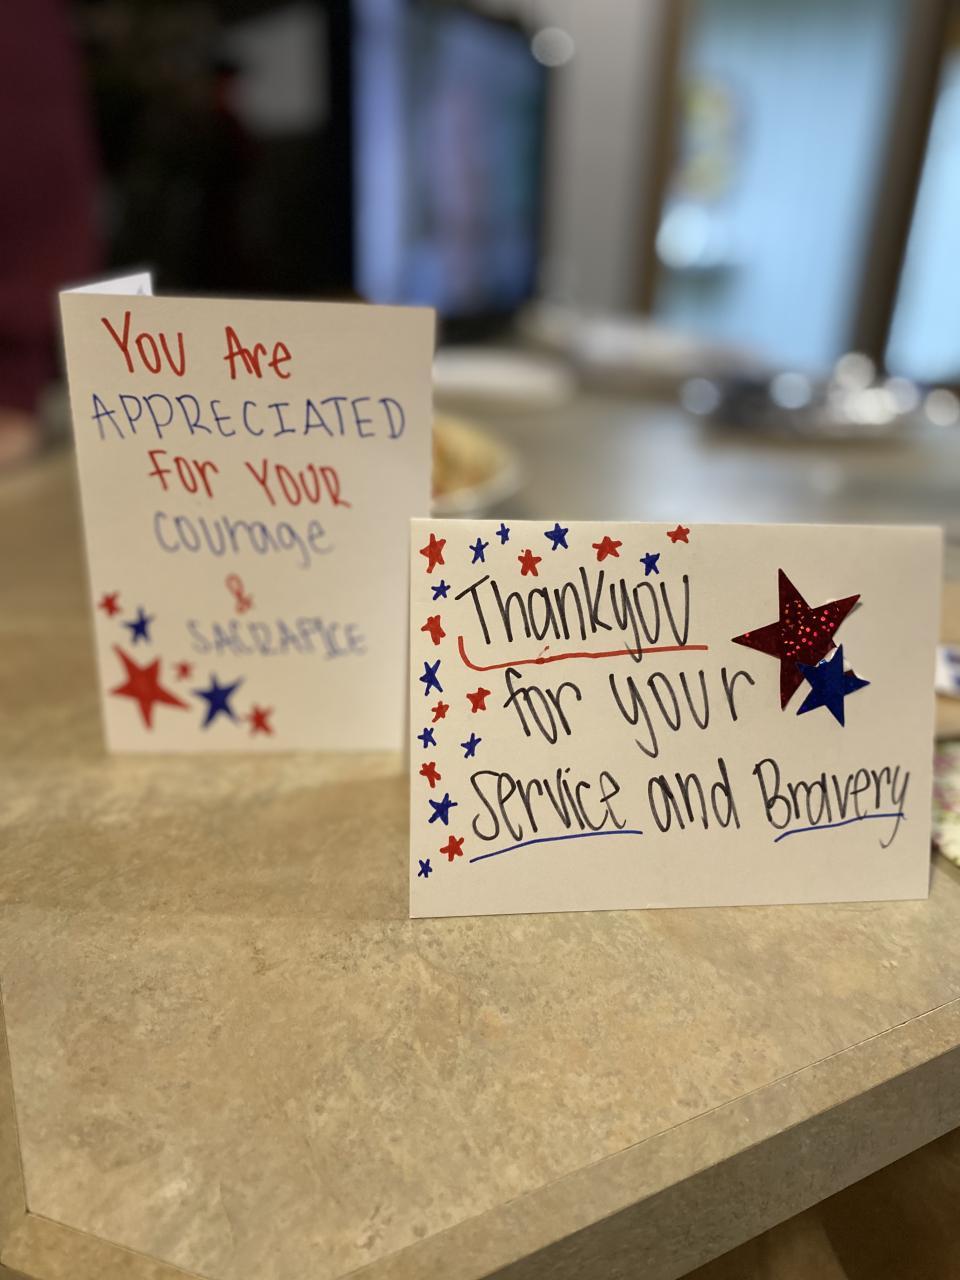 You Are
APPRECIATED
For YOUR
Courage
&
SACRAFICE
Thankyou
for your
Service and Bravery